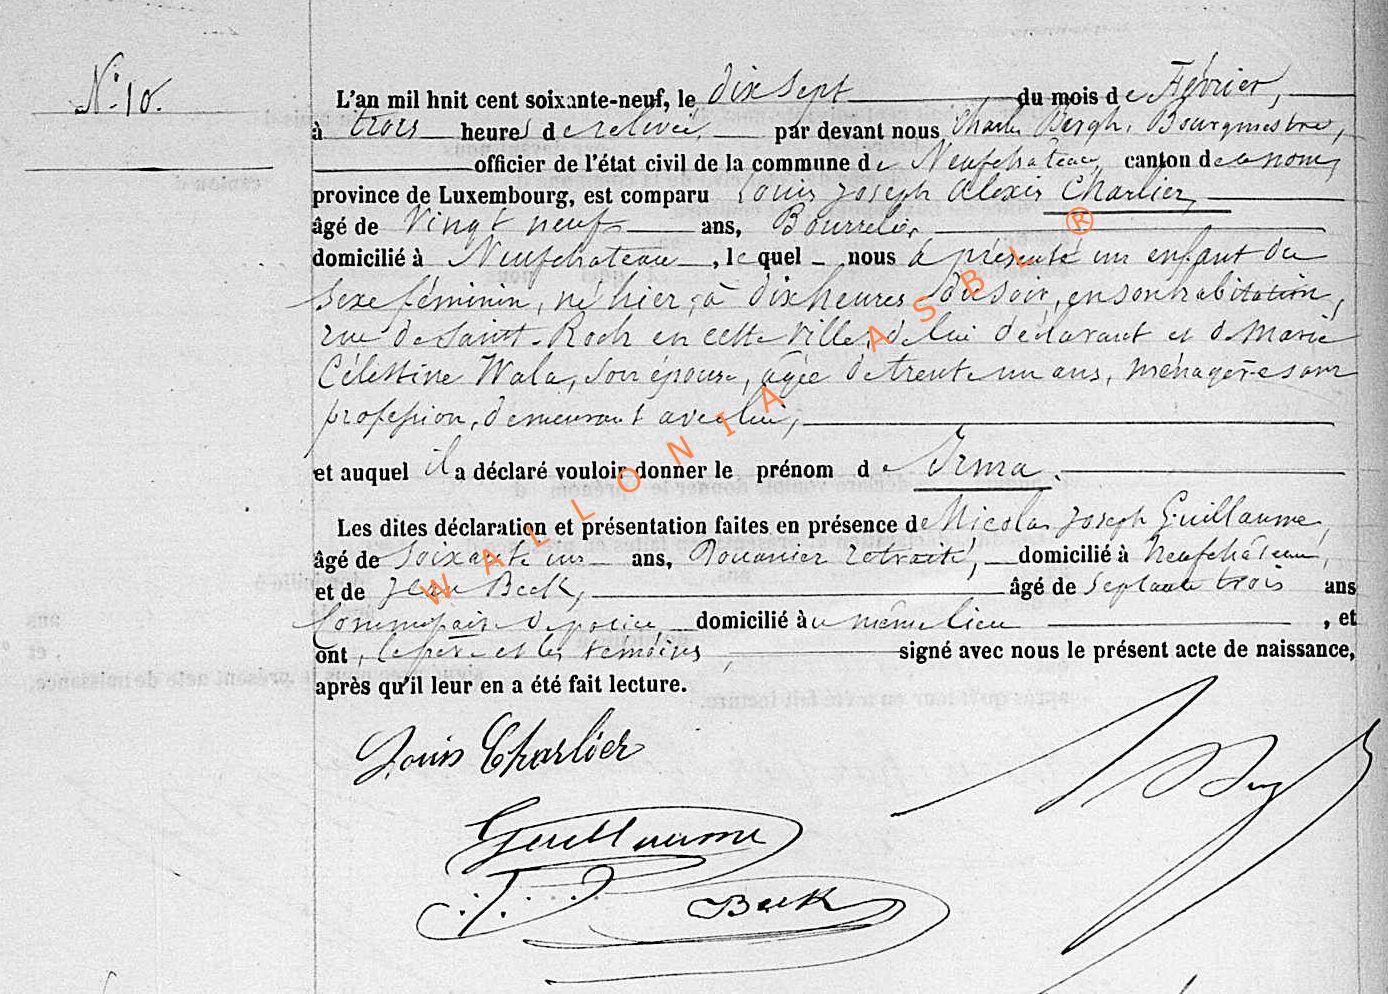 N° 10.
L'an mil hnit cent soixante-neuf, le dix sept du mois de Février,
à trois heures de relevée, par devant nous Charles Bergh, Bourgmestre,
officier de l'état civil de la commune de Neufchâteau, canton de ce nom,
province de Luxembourg, est comparu Louis Joseph Alexis Charlier,
âgé de Vingt neuf ans, Bourrelier
domicilié à Neufchateau, lequel nous a présenté un enfant du
sexe féminin, né hier, à dix heures du soir, en son habitation,
rue de Saint-Roch en cette Ville, de lui déclarant et de Marie
Célestine Wala, son épouse, agée de trente un ans, ménagère sans
profession, demeurant avec lui,
et auquel il a déclaré vouloir donner le prénom de Irma.
Les dites déclaration et présentation faites en présence de Nicolas Joseph Guillaume,
âgé de soixante un ans, Douanier retraité, domicilié à Neufchâteau,
et de Jean Beck, âgé de Septante trois ans
Commissaire de police domicilié au même lieu, et
ont, le père et les témoins, signé avec nous le présent acte de naissance,
après qu'il leur en a été fait lecture.
Louis Charlier
Guillaume
J. Beck
WALLONIA ASBL ®